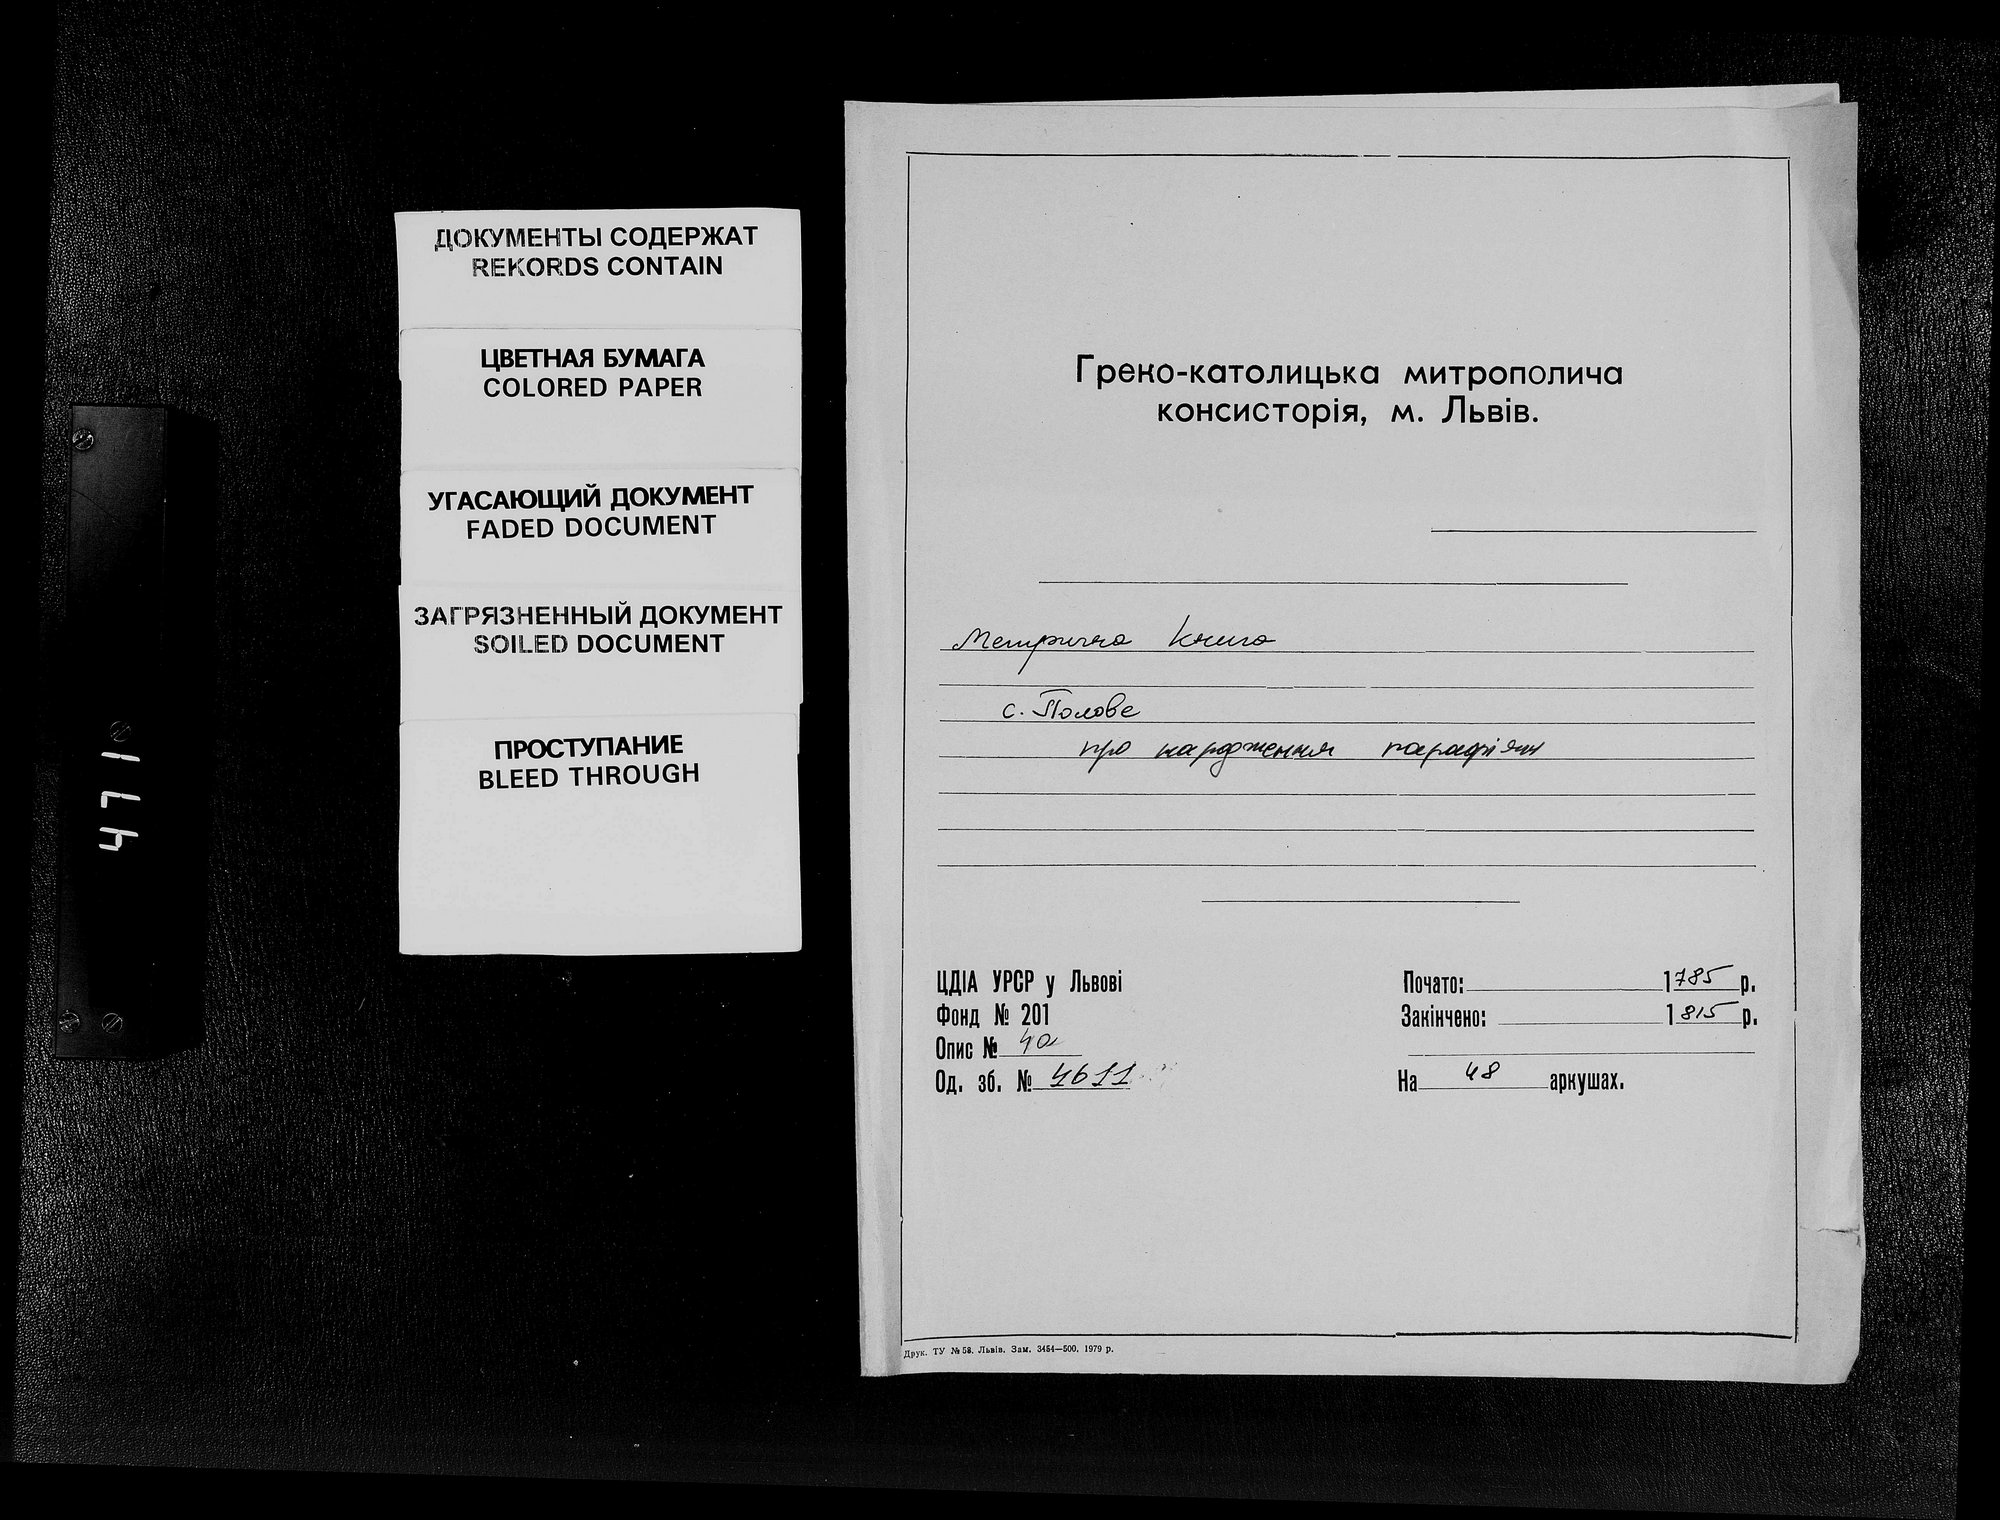 ДОКУМЕНТЫ СОДЕРЖАТ
REKORDS CONTAIN
ЦВЕТНАЯ БУМАГА
COLORED PAPER
УГАСАЮЩИЙ ДОКУМЕНТ
FADED DOCUMENT
ЗАГРЯЗНЕННЫЙ ДОКУМЕНТ
SOILED DOCUMENT
ПРОСТУПАНИЕ
BLEED THROUGH
471
Греко-католицька митрополича
консисторія, м. Львів.
Метрична книга
с. Полове
про народження парафіян
ЦДІА УРСР у Львові
Фонд № 201
Опис № 4а
Од. зб. № 4611
Почато: 1785 р.
Закінчено: 1815 р.
На 48 аркушах.
Друк. ТУ № 58. Львів. Зам. 3454—500, 1979 р.